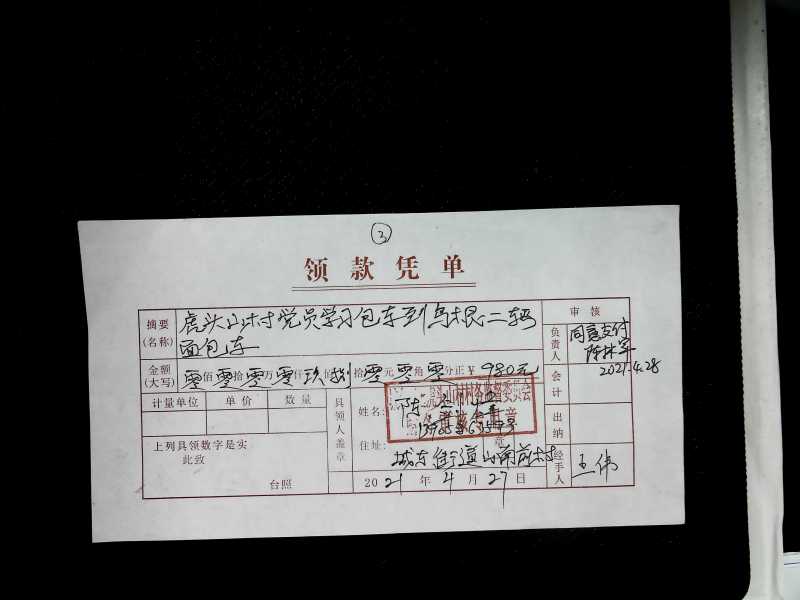 ③
领款凭单
摘要(名称) 虎头山村党员学习包车到乌根二辆
面包车
审核
负责人 同意支付
2021.4.28
金额(大写) 零佰零拾零万零仟玖佰捌拾零元零角零分正 ¥ 980元
计量单位 单价 数量
具领人盖章
姓名:
会计
出纳
上列具领数字是实
此致
台照
住址: 城东街道山南前村
2021年4月27日
经手人 王伟